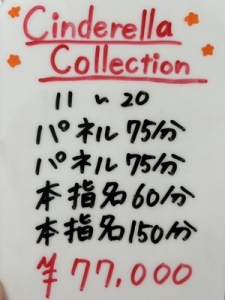 Cinderella
Collection
11 〜 20
パネル 75分
パネル 75分
本指名 60分
本指名 150分
¥77,000